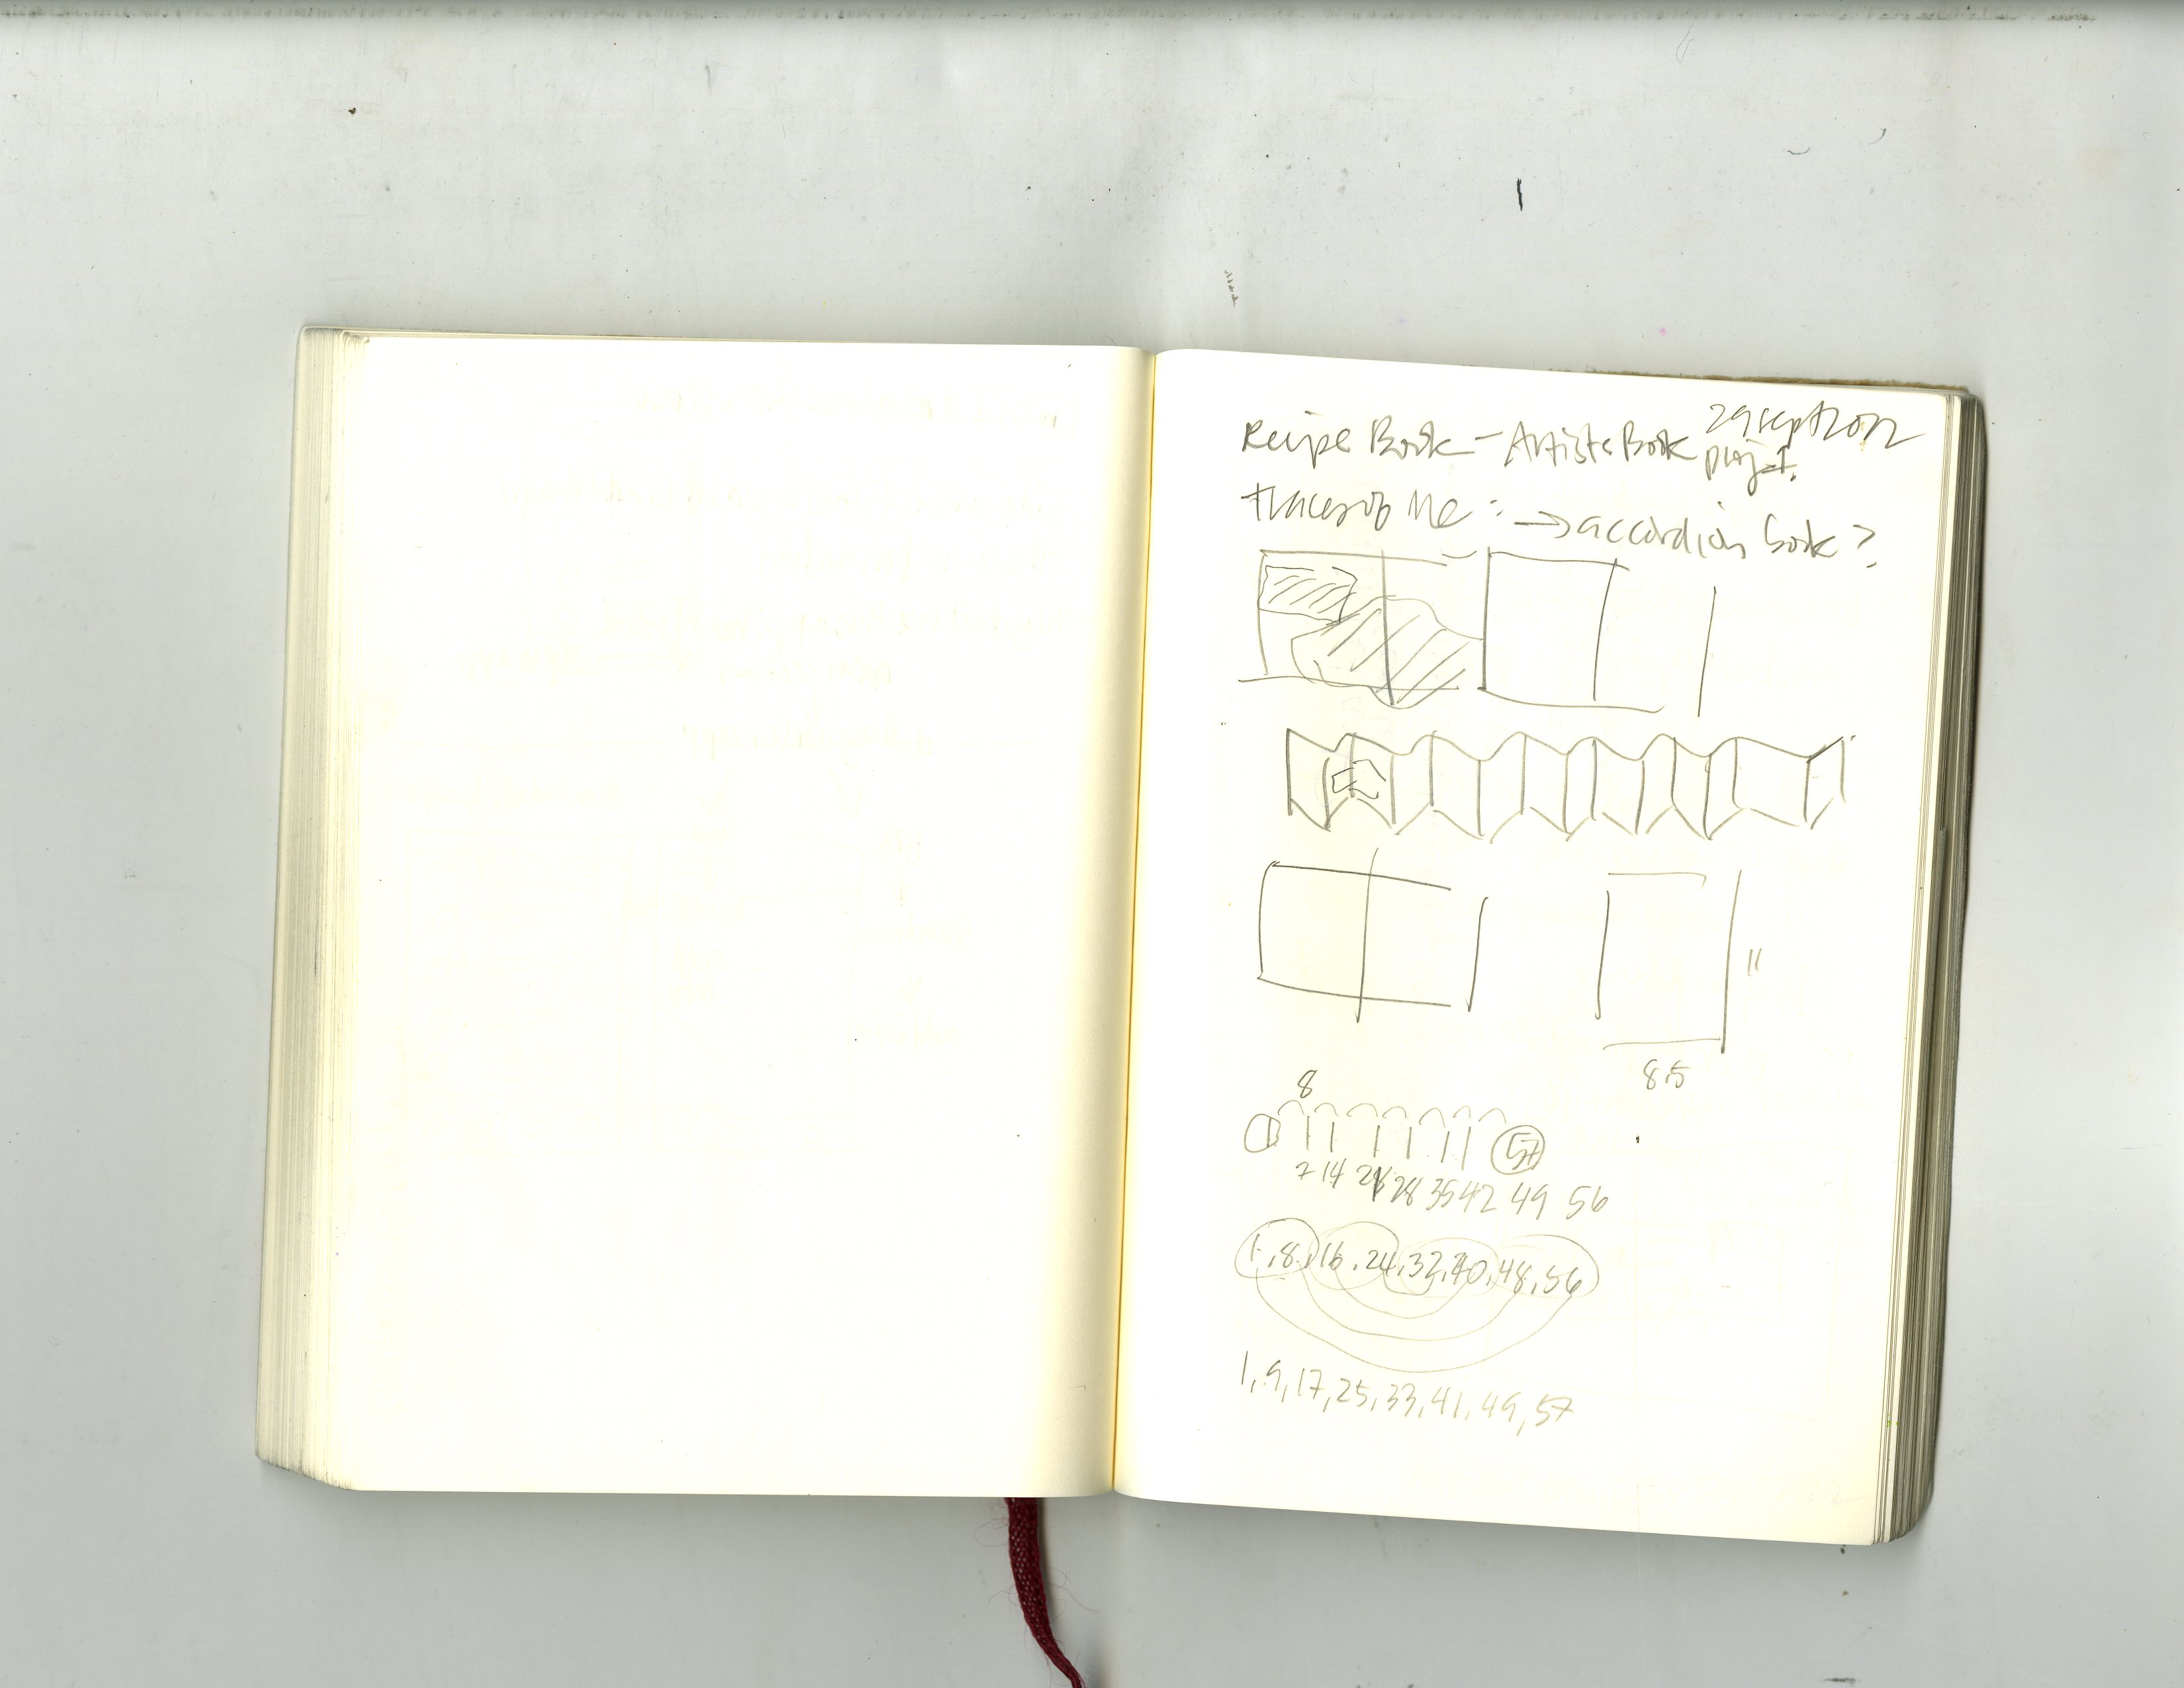 Recipe Book - Artists Book 29 sept 2012
project.
traces of me : → accordion book?
11
8.5
8
57
7 14 28 35 42 49 56
1, 8, 16, 24, 32, 40, 48, 56
1, 9, 17, 25, 33, 41, 49, 57